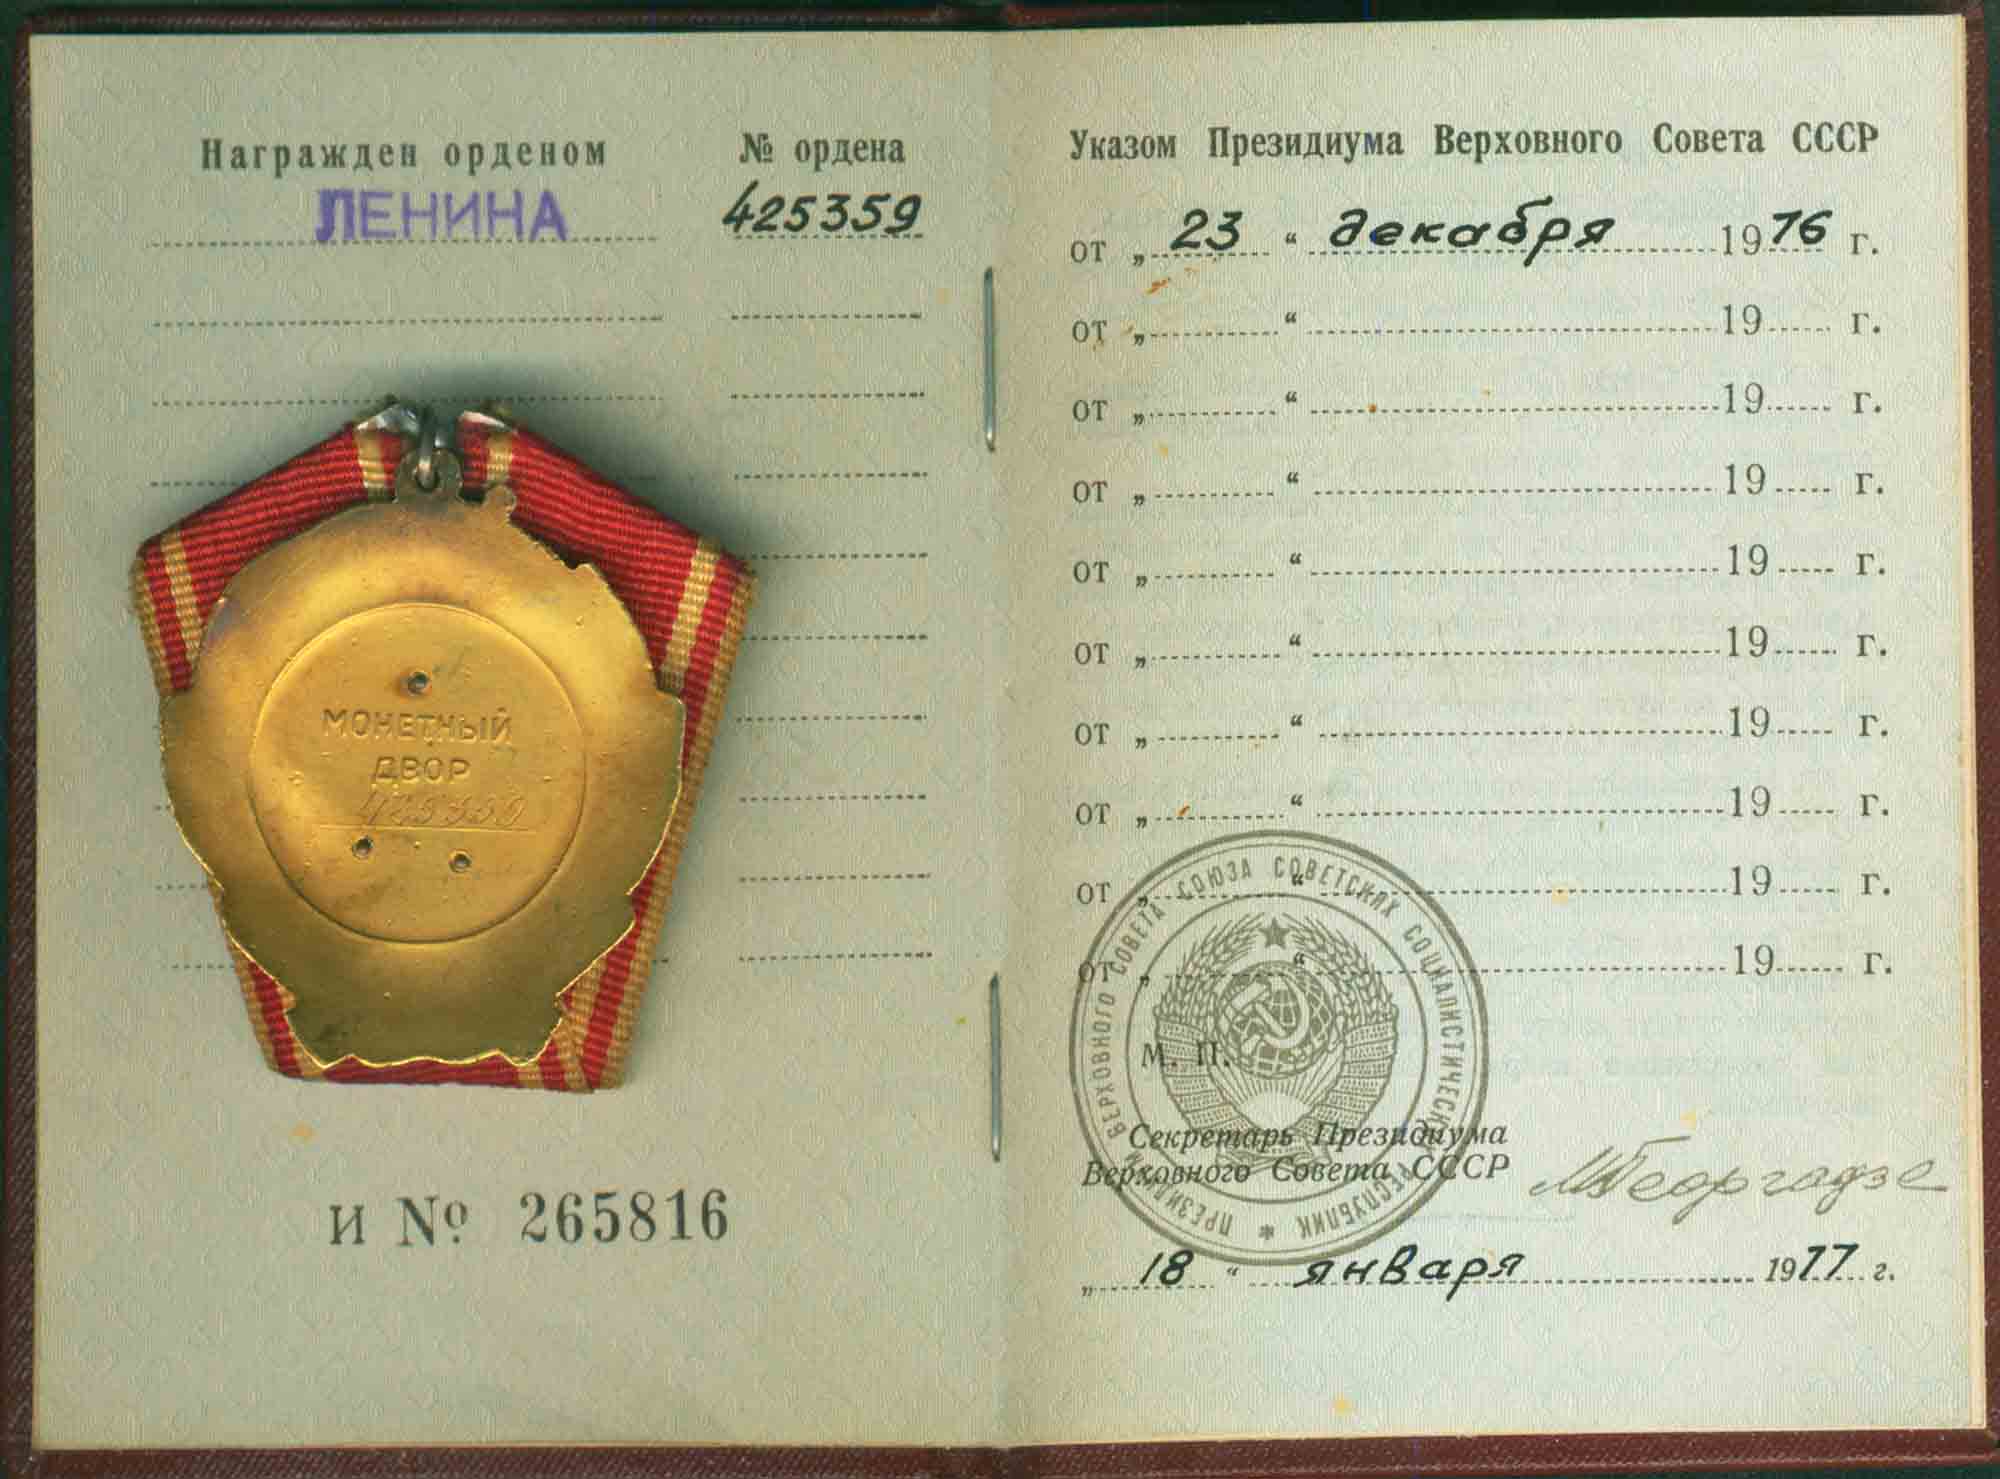 Награжден орденом
№ ордена
ЛЕНИНА
425359
МОНЕТНЫЙ
ДВОР
425359
И № 265816
Указом Президиума Верховного Совета СССР
от „ 23 “ декабря 1976 г.
от „ “ 19 г.
от „ “ 19 г.
от „ “ 19 г.
от „ “ 19 г.
от „ “ 19 г.
от „ “ 19 г.
от „ “ 19 г.
от „ “ 19 г.
от „ “ 19 г.
ПРЕЗИДИУМ ВЕРХОВНОГО СОВЕТА СОЮЗА СОВЕТСКИХ СОЦИАЛИСТИЧЕСКИХ РЕСПУБЛИК
М. П.
Секретарь Президиума
Верховного Совета СССР
МГеоргадзе
„ 18 “ января 1977 г.